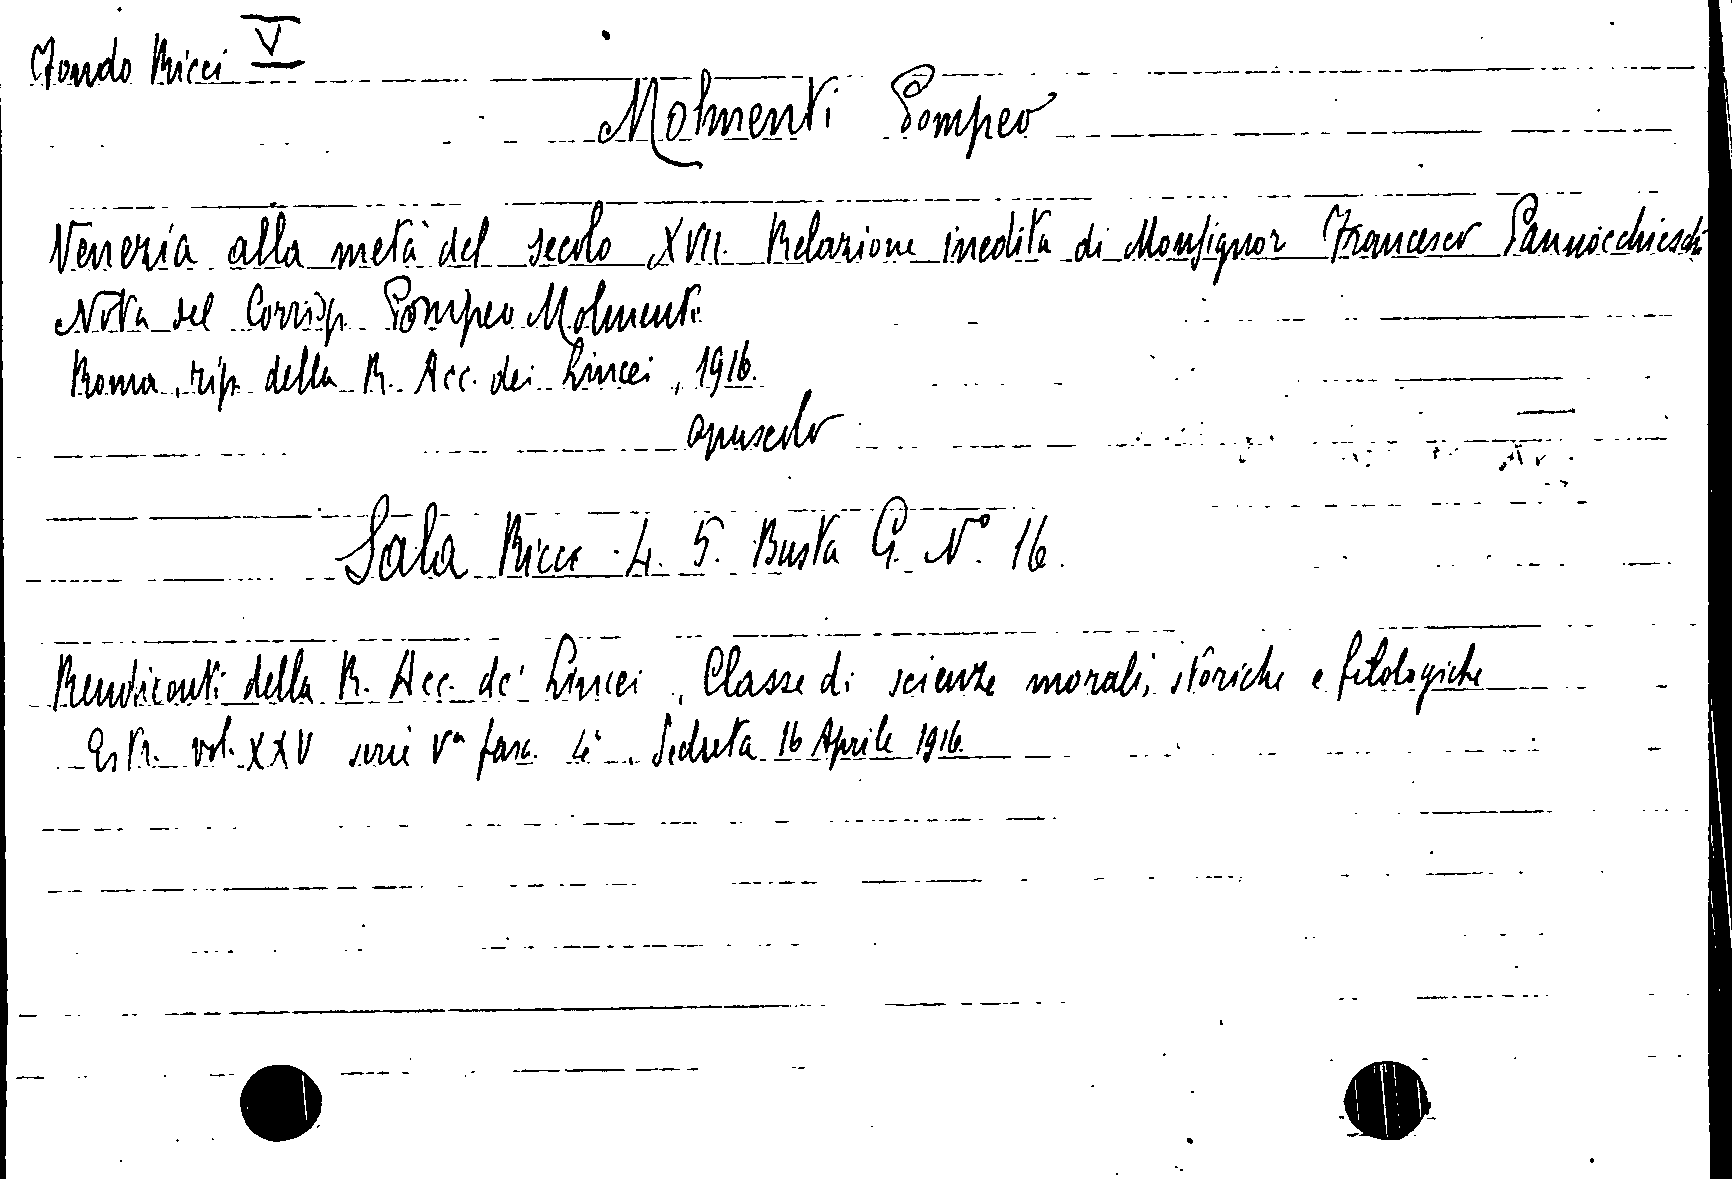 Fondo Ricci V
Molmenti Pompeo
Venezia alla metà del secolo XVII. Relazione inedita di Monsignor Francesco Pannocchieschi
Nota del Corrisp. Pompeo Molmenti
Roma, tip. della R. Acc. dei Lincei, 1916.
opuscolo
Sala Ricci . 4. 5. Busta G. N° 16.
Rendiconti della R. Acc. de' Lincei, Classe di scienze morali, storiche e filologiche
Estr. vol. XXV serie Vª fasc. 4°. Seduta 16 Aprile 1916.